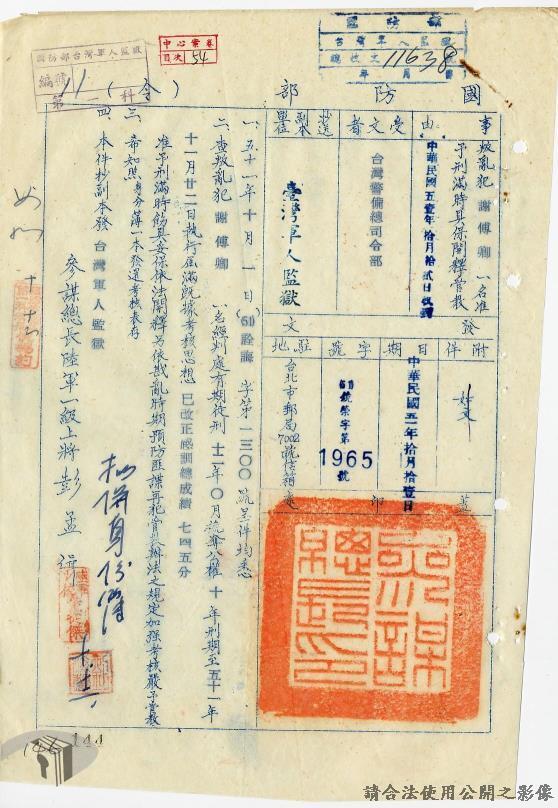 國防部台灣軍人監獄
編號
第 11 科
中心案卷
目次 54
國防部
台灣軍人監獄
總收文 11638 號
年 月 日
國防部（令）
事由
叛亂犯 謝傅卿 一名准
予刑滿時具保開釋管教
中華民國五壹年拾月拾貳日
受文者
台灣警備總司令部
副本
單位
臺灣軍人監獄
發文
附件
日期
中華民國五一年拾月拾壹日
字號
字第
1965
號
駐地
台北市郵局
7002
號信箱
蓋印
一、五十一年十月一日(51)
字第一三〇〇號呈件均悉
二、查叛亂犯 謝傅卿 一名經判處有期徒刑 十二年〇月褫奪公權 十年刑期至五十一年
十一月廿二日執行屆滿既據考核思想 已改正感訓總成績 七四五分
准予刑滿時飭具妥保依法開釋另依戡亂時期預防匪諜再犯管教辦法之規定加強考核嚴予管教
三、希知照身分簿一本發還考核表存
四、本件抄副本發 台灣軍人監獄
參謀總長陸軍一級上將彭孟緝
參謀總長印
146
144
請合法使用公開之影像